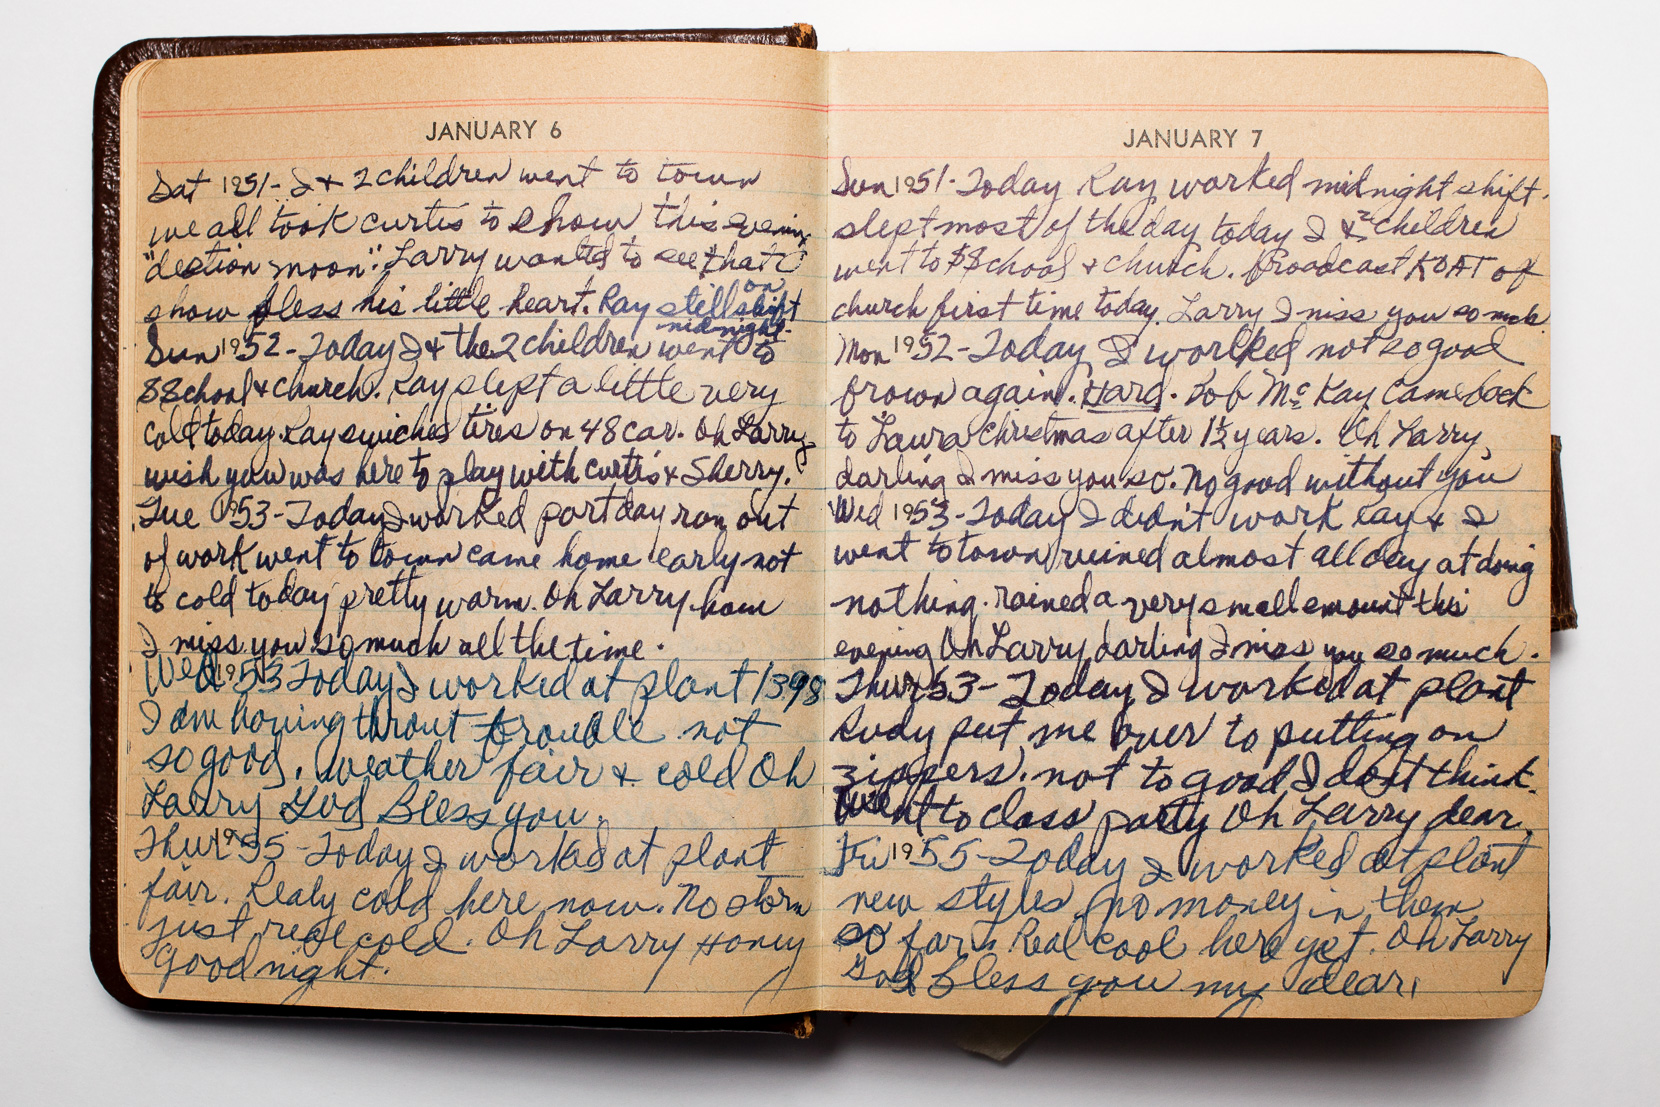 JANUARY 6
Sat 1951- I & 2 children went to town
we all took curtis to show this evening
"dection moon". Larry wanted to see that
show bless his little heart. Ray still on shift
midnight.
Sun 1952- Today I & the 2 children went to
SSchool & church. Ray slept a little very
cold today. Ray swiches tires on 48 car. Oh Larry
wish you was here to play with curtis & Sherry.
Tue 1953- Today I worked part day run out
of work went to town came home early not
to cold today pretty warm. Oh Larry how
I miss you so much all the time.
Wed 1953 Today I worked at plant 1398
I am having throut trouble not
so good. weather fair & cold Oh
Larry God Bless you.
Thur 1955- Today I worked at plant
fair. Realy cold here now. No storm
just real cold. Oh Larry Honey
Good night.
JANUARY 7
Sun 1951- Today Ray worked midnight shift.
slept most of the day today I & 2 children
went to SSchool & church. Broadcast KOAT of
church first time today. Larry I miss you so much.
Mon 1952- Today I worlked not so good
brown again. Hard. Bob McKay came back
to Laura Christmas after 1½ years. Oh Larry
darling I miss you so. No good without you
Wed 1953- Today I didn't work Ray & I
went to town ruined almost all day at doing
nothing. rained a very small amount this
evening Oh Larry darling I miss you so much.
Thur 53- Today I worked at plant
Rudy put me over to putting on
zippers. not to good I dont think.
Went to class party Oh Larry dear.
Fri 1955- Today I worked at plant
new styles no money in them
so far. Real cool here yet. Oh Larry
God Bless you my dear.